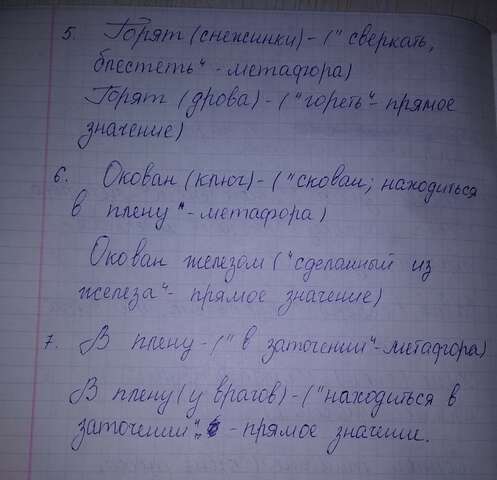 5. Горят (снежинки) - („сверкать,
блестеть" - метафора)
Горят (дрова) - („гореть" - прямое
значение)
6. Окован (ключ) - („скован; находиться
в плену" - метафора)
Окован железом („сделанный из
железа" - прямое значение)
7. В плену - („в заточении" - метафора)
В плену (у врагов) - („находиться в
заточении" - прямое значение.